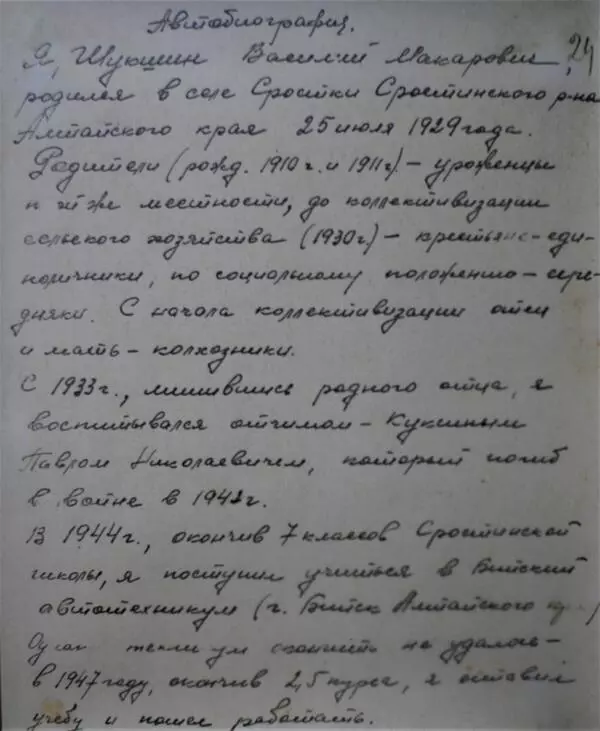 Автобиография.
24
Я, Шукшин Василий Макарович,
родился в селе Сростки Сростинского р-на
Алтайского края 25 июля 1929 года.
Родители (рожд. 1910 г. и 1911 г.) – уроженцы
местности, до коллективизации
сельского хозяйства (1930 г.) – крестьяне-еди-
ноличники, по социальному положению – серед-
дняки. С начала коллективизации отец
и мать – колхозники.
С 1933 г., лишившись родного отца, я
воспитывался отчимом – Куксиным
Павлом Николаевичем, который погиб
в войне в 1942 г.
В 1944 г., окончив 7 классов Сростинской
школы, я поступил учиться в Бийский
автотехникум (г. Бийск Алтайского
техникум окончить не удалось –
в 1947 году, окончив 2,5 курса, я оставил
учебу и пошел работать.